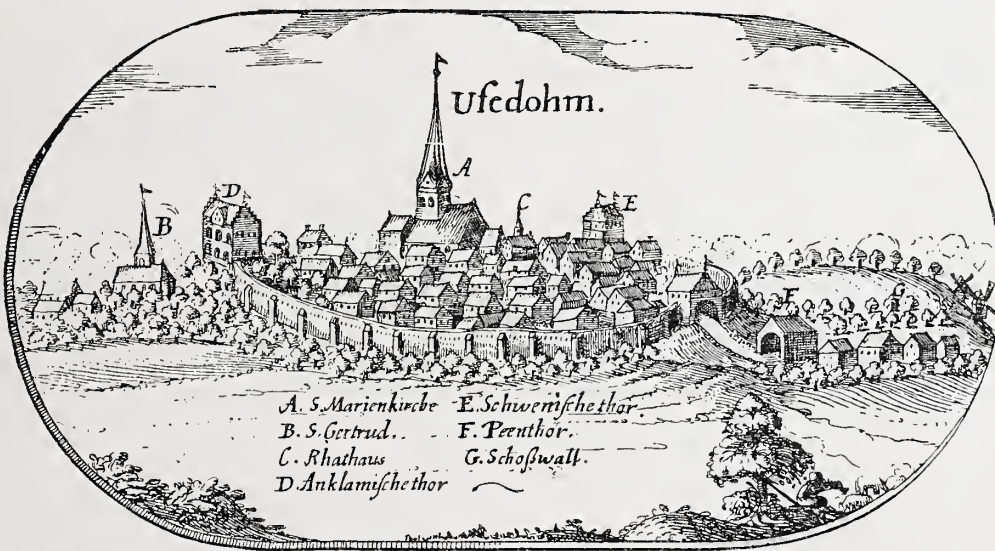 Usedohm.
A
B
C
D
E
F
G
A. S. Marienkirche
B. S. Gertrud.
C. Rhathaus
D. Anklamische thor
E. Schwenische thor
F. Peenthor.
G. Schoßwall.